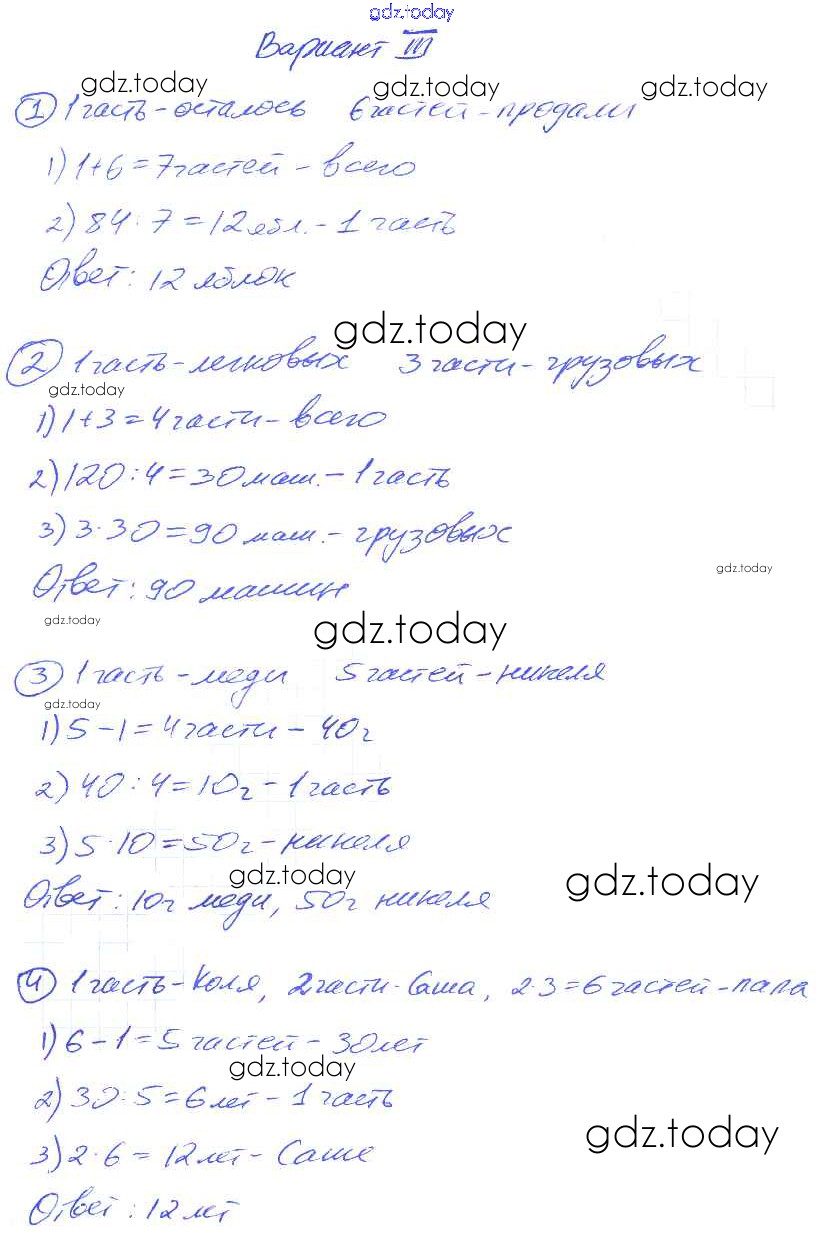 gdz.today
Вариант III
gdz.today gdz.today gdz.today
① 1 часть - осталось 6 частей - продали
1) 1+6=7 частей - всего
2) 84:7=12 ябл. - 1 часть
Ответ: 12 яблок
gdz.today
② 1 часть - легковых 3 части - грузовых
gdz.today
1) 1+3=4 части - всего
2) 120:4=30 маш. - 1 часть
3) 3·30=90 маш. - грузовых
gdz.today
Ответ: 90 машин
gdz.today
gdz.today
③ 1 часть - меди 5 частей - никеля
gdz.today
1) 5-1=4 части - 40г
2) 40:4=10г - 1 часть
3) 5·10=50г - никеля
gdz.today gdz.today
Ответ: 10г меди, 50г никеля
④ 1 часть - Коля, 2 части - Саша, 2·3=6 частей - папа
1) 6-1=5 частей - 30 лет
gdz.today
2) 30:5=6 лет - 1 часть
gdz.today
3) 2·6=12 лет - Саше
Ответ: 12 лет